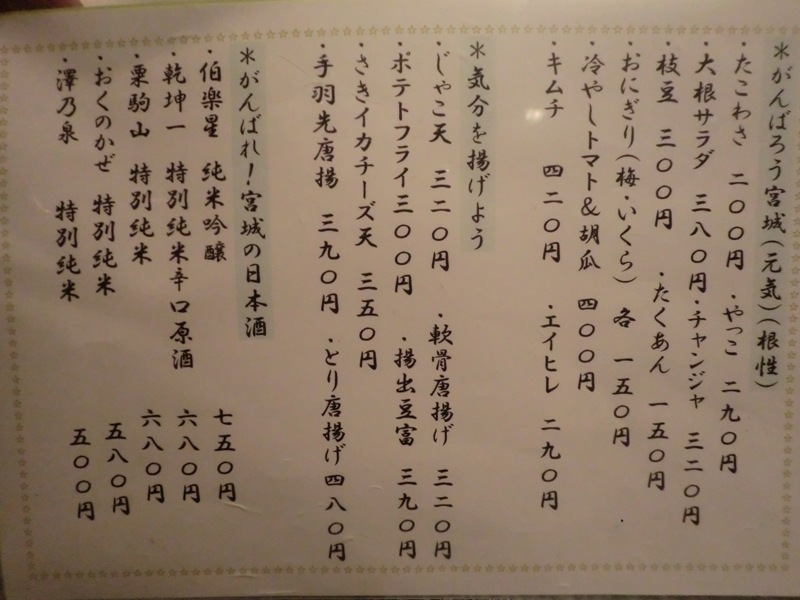 ＊がんばろう宮城(元気)(根性)
・たこわさ　二〇〇円　・やっこ　二九〇円
・大根サラダ　三八〇円・チャンジャ　三二〇円
・枝豆　三〇〇円　・たくあん　一五〇円
・おにぎり(梅・いくら)　各　一五〇円
・冷やしトマト＆胡瓜　四〇〇円
・キムチ　四二〇円　・エイヒレ　二九〇円
＊気分を揚げよう
・じゃこ天　三二〇円　・軟骨唐揚げ　三二〇円
・ポテトフライ三〇〇円　・揚出豆富　三九〇円
・さきイカチーズ天　三五〇円
・手羽先唐揚　三九〇円　・とり唐揚げ四八〇円
＊がんばれ！宮城の日本酒
・伯楽星　純米吟醸　七五〇円
・乾坤一　特別純米辛口原酒　六八〇円
・栗駒山　特別純米　六八〇円
・おくのかぜ　特別純米　五八〇円
・澤乃泉　特別純米　五〇〇円